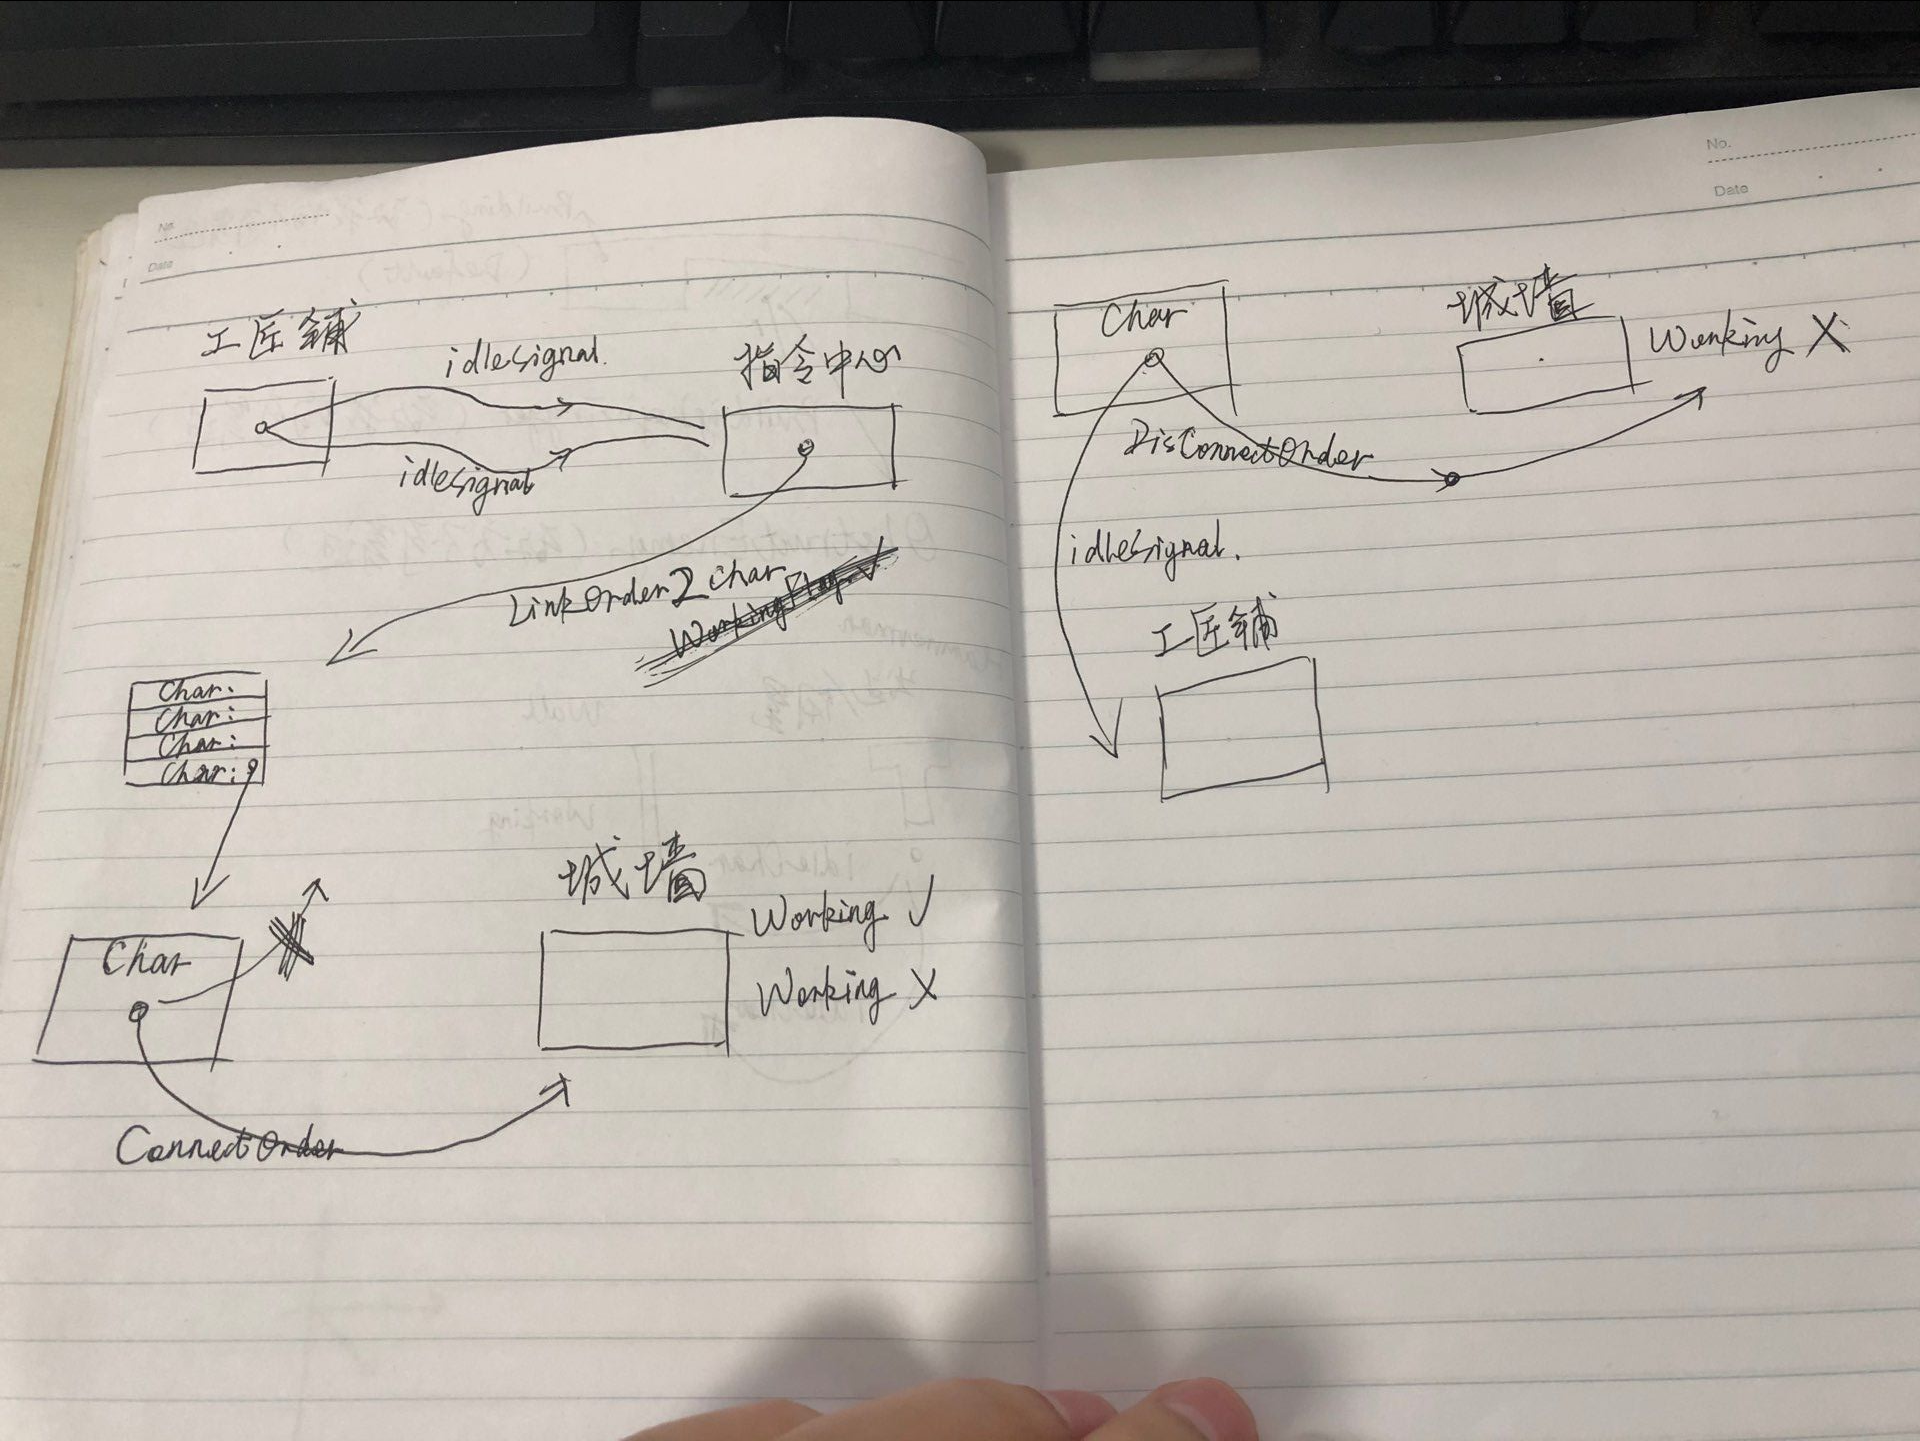 No.
Date
工匠铺
idlesignal.
指令中心
idlesignal
LinkOrder2Char
WorkingFlag ✓
Char:
Char:
Char:
Char:
城墙
Working ✓
Char
Working X
ConnectOrder
No.
Date
Char
城墙
Working X
DisConnectOrder
idlesignal.
工匠铺